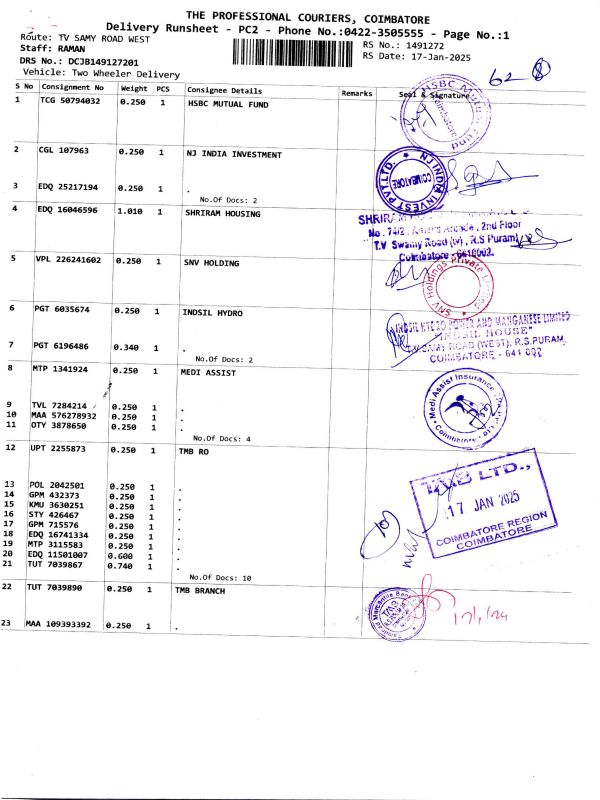 THE PROFESSIONAL COURIERS, COIMBATORE
Delivery Runsheet - PC2 - Phone No.:0422-3505555 - Page No.:1
Route: TV SAMY ROAD WEST
RS No.: 1491272
Staff: RAMAN
RS Date: 17-Jan-2025
DRS No.: DCJB149127201
Vehicle: Two Wheeler Delivery
62
S No Consignment No Weight PCS Consignee Details Remarks Seal & Signature
1 TCG 50794032 0.250 1 HSBC MUTUAL FUND
HSBC Mutual Fund
Coimbatore
2 CGL 107963 0.250 1 NJ INDIA INVESTMENT
NJ INDIA INVEST PVT.LTD.
COIMBATORE
3 EDQ 25217194 0.250 1 .
No.Of Docs: 2
4 EDQ 16046596 1.010 1 SHRIRAM HOUSING
SHRIRAM
No. 74/2, Arcade, 2nd Floor
T.V Swamy Road (w), R.S Puram,
Coimbatore - 6410002.
5 VPL 226241602 0.250 1 SNV HOLDING
SNV Holdings Private Limited
6 PGT 6035674 0.250 1 INDSIL HYDRO
INDSIL HYDRO POWER AND MANGANESE LIMITED
"INDSIL HOUSE"
T.V.SAMY ROAD (WEST), R.S.PURAM,
COIMBATORE - 641 002
7 PGT 6196486 0.340 1 .
No.Of Docs: 2
8 MTP 1341924 0.250 1 MEDI ASSIST
Medi Assist Insurance
Coimbatore
9 TVL 7284214 0.250 1 .
10 MAA 576278932 0.250 1 .
11 OTY 3878650 0.250 1 .
No.Of Docs: 4
12 UPT 2255873 0.250 1 TMB RO
TMB LTD.,
17 JAN 2025
COIMBATORE REGION
COIMBATORE
13 POL 2042501 0.250 1 .
14 GPM 432373 0.250 1 .
15 KMU 3630251 0.250 1 .
16 STY 426467 0.250 1 .
17 GPM 715576 0.250 1 .
18 EDQ 16741334 0.250 1 .
19 MTP 3115583 0.250 1 .
20 EDQ 11501007 0.600 1 .
21 TUT 7039867 0.740 1 .
10
No.Of Docs: 10
22 TUT 7039890 0.250 1 TMB BRANCH
Mercantile Bank
23 MAA 109393392 0.250 1 .